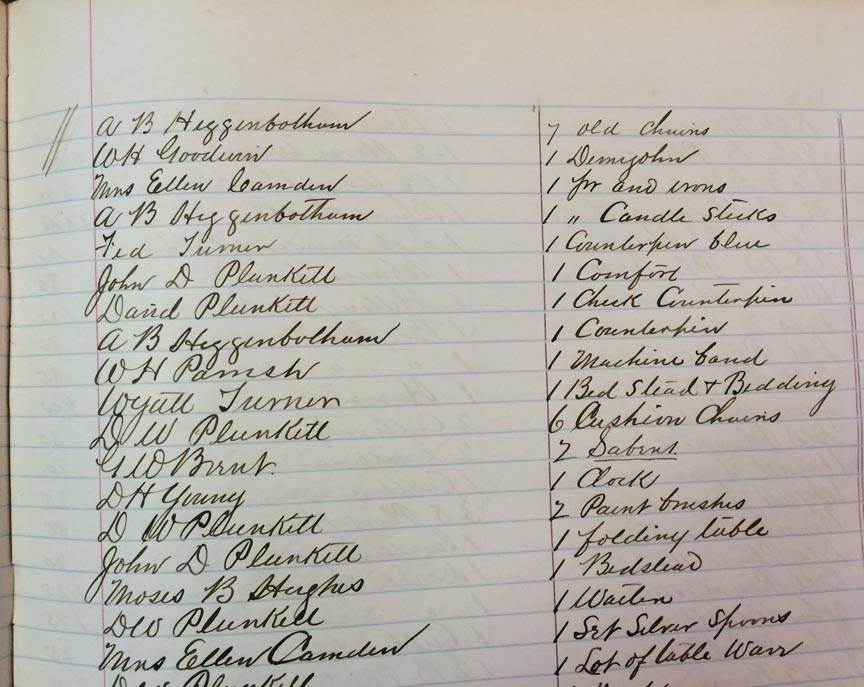 A B Higgenbotham 7 old chairs
W H Goodwin 1 Demijohn
Mrs Ellen Camden 1 pr and irons
A B Higgenbotham 1 " Candle Sticks
Ted Turner 1 Counterpin blue
John D Plunkett 1 Comfort
David Plunkett 1 Check Counterpin
A B Higgenbotham 1 Counterpin
W H Parrish 1 Machine band
Wyatt Turner 1 Bed Stead & Bedding
D W Plunkett 6 Cushion Chairs
G W 2
D H Young 1 Clock
D W Plunkett 2 Paint brushes
John D Plunkett 1 folding table
Moses B Hughes 1 Bedstead
D W Plunkett 1 Waiter
Mrs Ellen Camden 1 Set Silver Spoons
Plunkett 1 Lot of table Ware